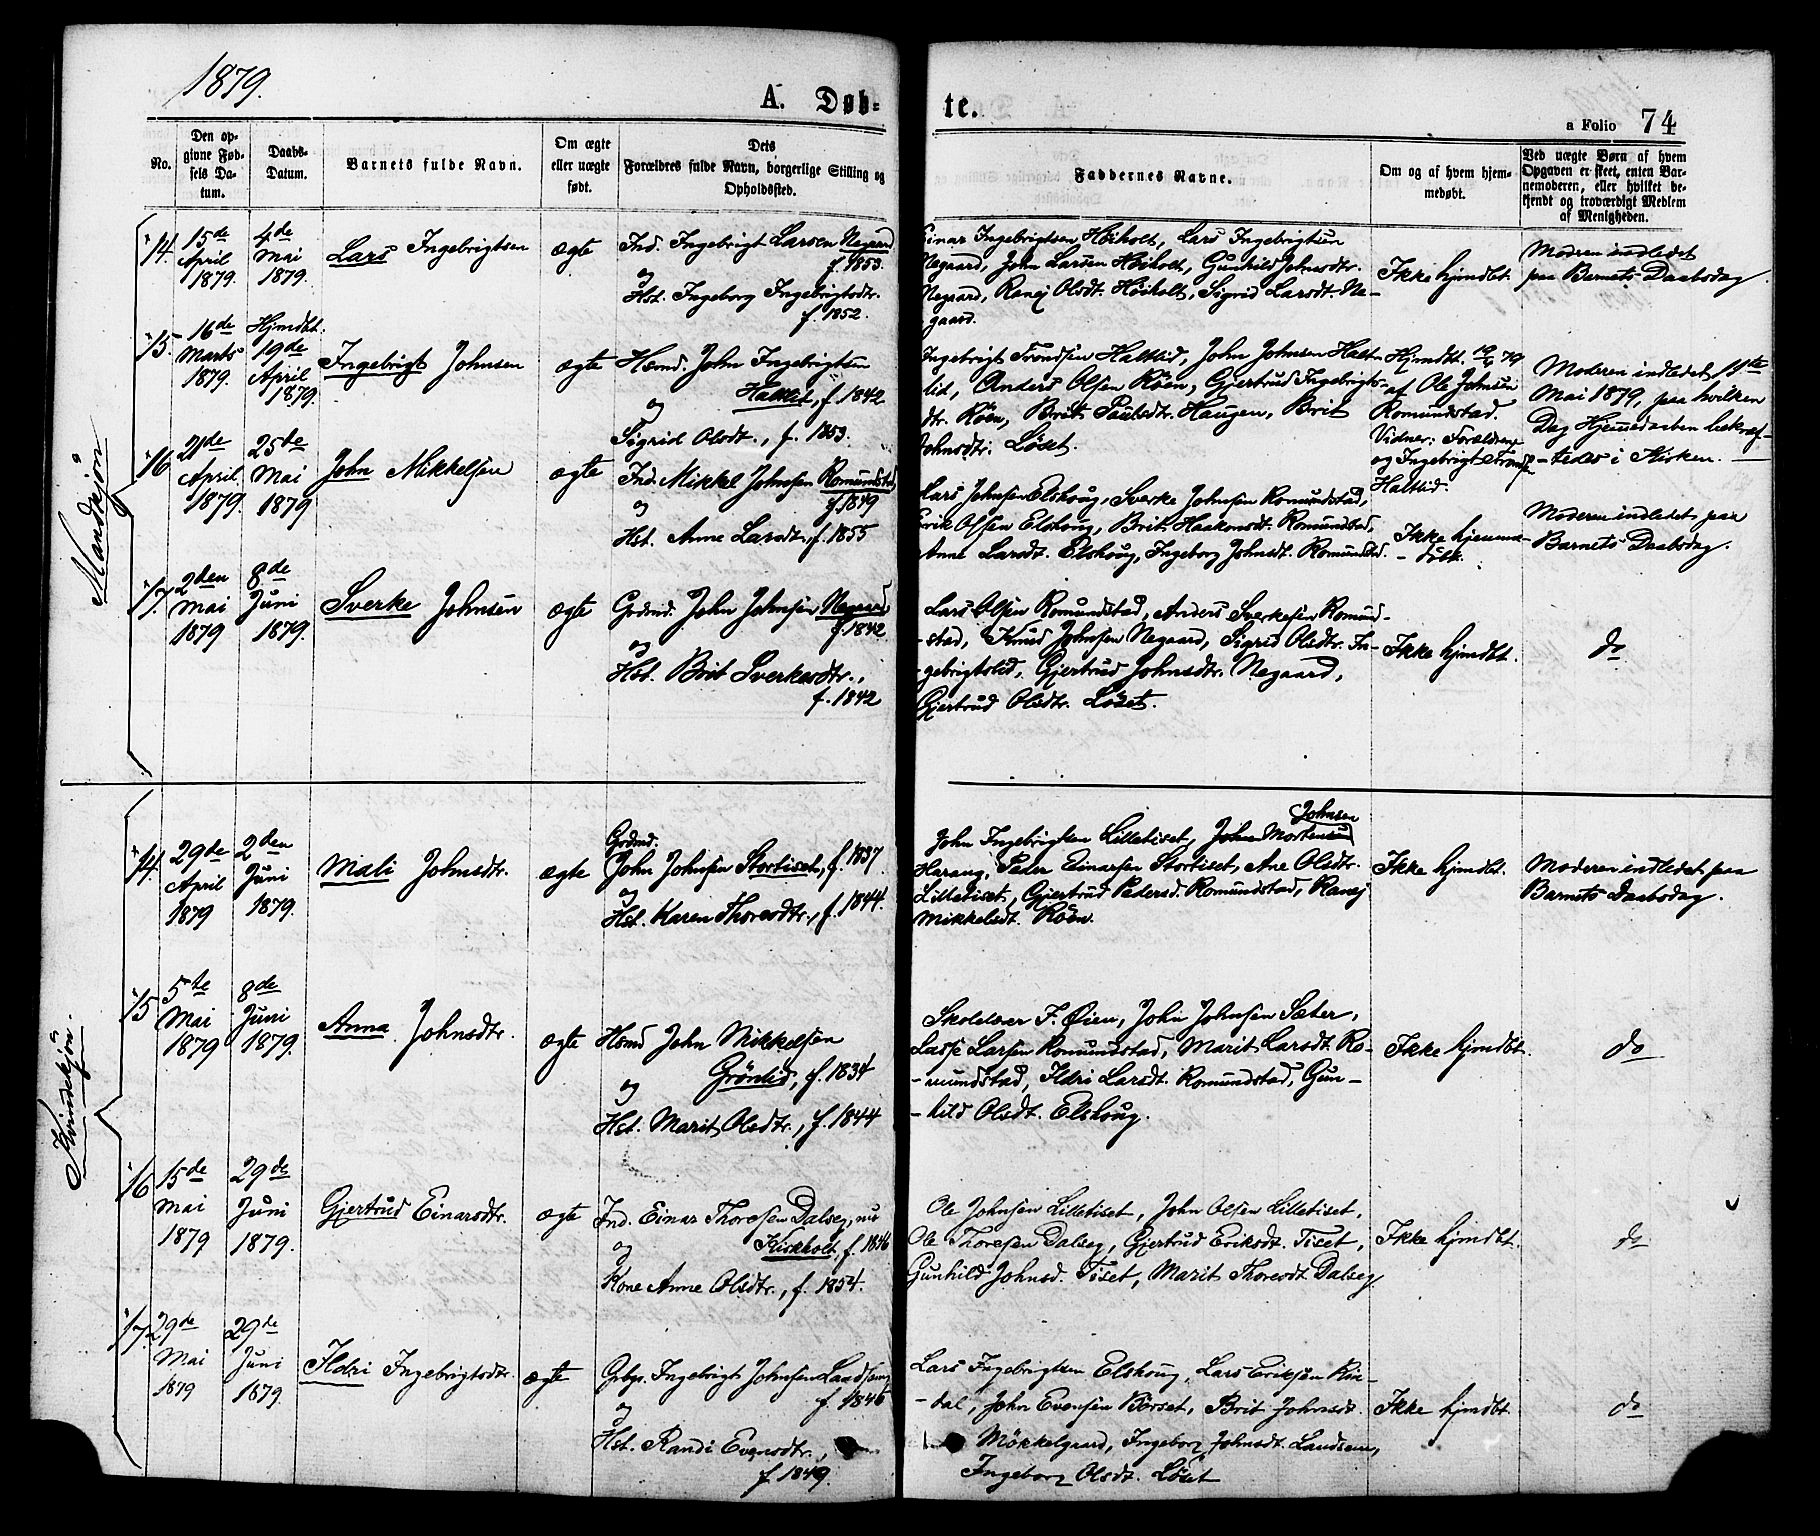 1879.
A. Døb-
te.
a Folio 74
No.
Den op-
givne Fød-
sels Da-
tum.
Daabs-
Datum.
Barnets fulde Navn.
Om ægte
eller uægte
født.
Dets
Forældres fulde Navn, borgerlige Stilling og
Opholdssted.
Faddernes Navne.
Om og af hvem hjem-
medøbt.
Ved uægte Børn af hvem
Opgaven er skeet, enten Bar-
nemoderen, eller hvilket be-
kjendt og troværdigt Medlem
af Menigheden.
Mandkjøn
14.
15de
April
1879.
4de
Mai
1879.
Lars Ingebrigtsen
ægte
Ind. Ingebrigt Larsen Negaard
f. 1853.
og
Hst. Ingeborg Ingebrigtsdtr.
f. 1852.
Einar Ingebrigtsen Høiholt, Lars Ingebrigtsen
Negaard, John Larsen Høiholt, Gunhild Johnsdtr.
Negaard, Ranej Olsdt. Høiholt, Sigrid Larsdt. Ne-
gaard.
Ikke hjmdbt.
Moderen indledet
paa Barnets Daabsdag.
15.
16de
Marts
1879.
Hjmdbt.
19de
April
1879.
Ingebrigt Johnsen
ægte
Hsmd. John Ingebrigtsen
Haltlid, f. 1842
og
Sigrid Olsdt., f. 1853.
Ingebrigt Trondsen Haltlid, John Johnsen Halt-
lid, Anders Olsen Røen, Gjertrud Ingebrigts-
dtr. Røen, Brit Paulsdtr. Haugen, Brit
Johnsdtr. Løset.
Hjmdbt. 19/4 79
af Ole Johnsen
Romundstad.
Vidner: Forældrene
og Ingebrigt Trondsen
Haltlid.
Moderen indledet 11te
Mai 1879, paa hvilken
Dag Hjemmedaaben bekræf-
tedes i Kirken.
16
21de
April
1879.
25de
Mai
1879
John Mikkelsen
ægte
Ind. Mikkel Johnsen Romundstad
f. 1849
og
Hst. Anne Larsdt., f. 1855
Lars Johnsen Elshoug, Sverke Johnsen Romundstad,
Erik Olsen Elshoug, Brit Haakonsdt. Romundstad,
Anne Larsdt. Elshoug, Ingeborg Johnsdt. Romundstad.
Ikke hjemme-
døbt.
Moderen indledet paa
Barnets Daabsdag.
17.
2den
Mai
1879
8de
Juni
1879.
Sverke Johnsen
ægte
Grdmd. John Johnsen Negaard
f. 1842
og
Hst. Brit Sverkesdtr.,
f. 1842
Lars Olsen Romundstad, Anders Sverkesen Romund-
stad, Knud Johnsen Negaard, Sigrid Olsdtr. In-
gebrigtslid, Gjertrud Johnsdtr. Negaard,
Gjertrud Olsdtr. Løset.
Ikke hjmdbt.
do
Kvindekjøn.
14.
29de
April
1879
2den
Juni
1879.
Mali Johnsdtr.
ægte
Grdmd.
John Johnsen Stortiset, f. 1837.
og
Hst. Karen Thoresdtr., f. 1844.
Johnsen
John Ingebrigtsen Lilletiset, John Mortensen
Harang, Peder Einarsen Stortiset, Ane Olsdtr.
Lilletiset, Gjertrud Pedersd. Romundstad, Ranej
Mikkelsdt. Røen.
Ikke hjmdbt.
Moderen indledet paa
Barnets Daabsdag.
15
5te
Mai
1879
8de
Juni
1879.
Anna Johnsdtr.
ægte
Hsmd John Mikkelsen
Grønlid, f. 1834
og
Hst. Marit Olsdtr., f. 1844
Skolelær F. Øien, John Johnsen Sæter,
Lasse Larsen Romundstad, Marit Larsdt. Ro-
mundstad, Ildri Larsdt. Romundstad, Gun-
hild Olsdt. Elshoug.
Ikke hjmdbt.
do
16
15de
Mai
1879
29de
Juni
1879.
Gjertrud Einarsdtr.
ægte
Ind. Einar Thoresen Dalseg, nu
Kirkholt, f. 1846
og
Kone Anne Olsdtr., f. 1854.
Ole Johnsen Lilletiset, John Olsen Lilletiset,
Ole Thoresen Dalseg, Gjertrud Eriksdt. Tiset,
Gunhild Johnsd. Tiset, Marit Thoresdt. Dalseg
Ikke hjmdbt.
do
17.
29de
Mai
1879
29de
Juni
1879.
Ildri Ingebrigtsdtr.
ægte
Ingebrigt Johnsen Landsem
f. 1846
og
Hst. Randi Evensdtr.,
f. 1849.
Lars Ingebrigtsen Elshoug, Lars Eriksen Rin-
dal, John Evensen Børset, Brit Johnsdt.
Møkkelgaard, Ingeborg Johnsdt. Landsem,
Ingeborg Olsdt. Løset
Ikke hjmdbt.
do